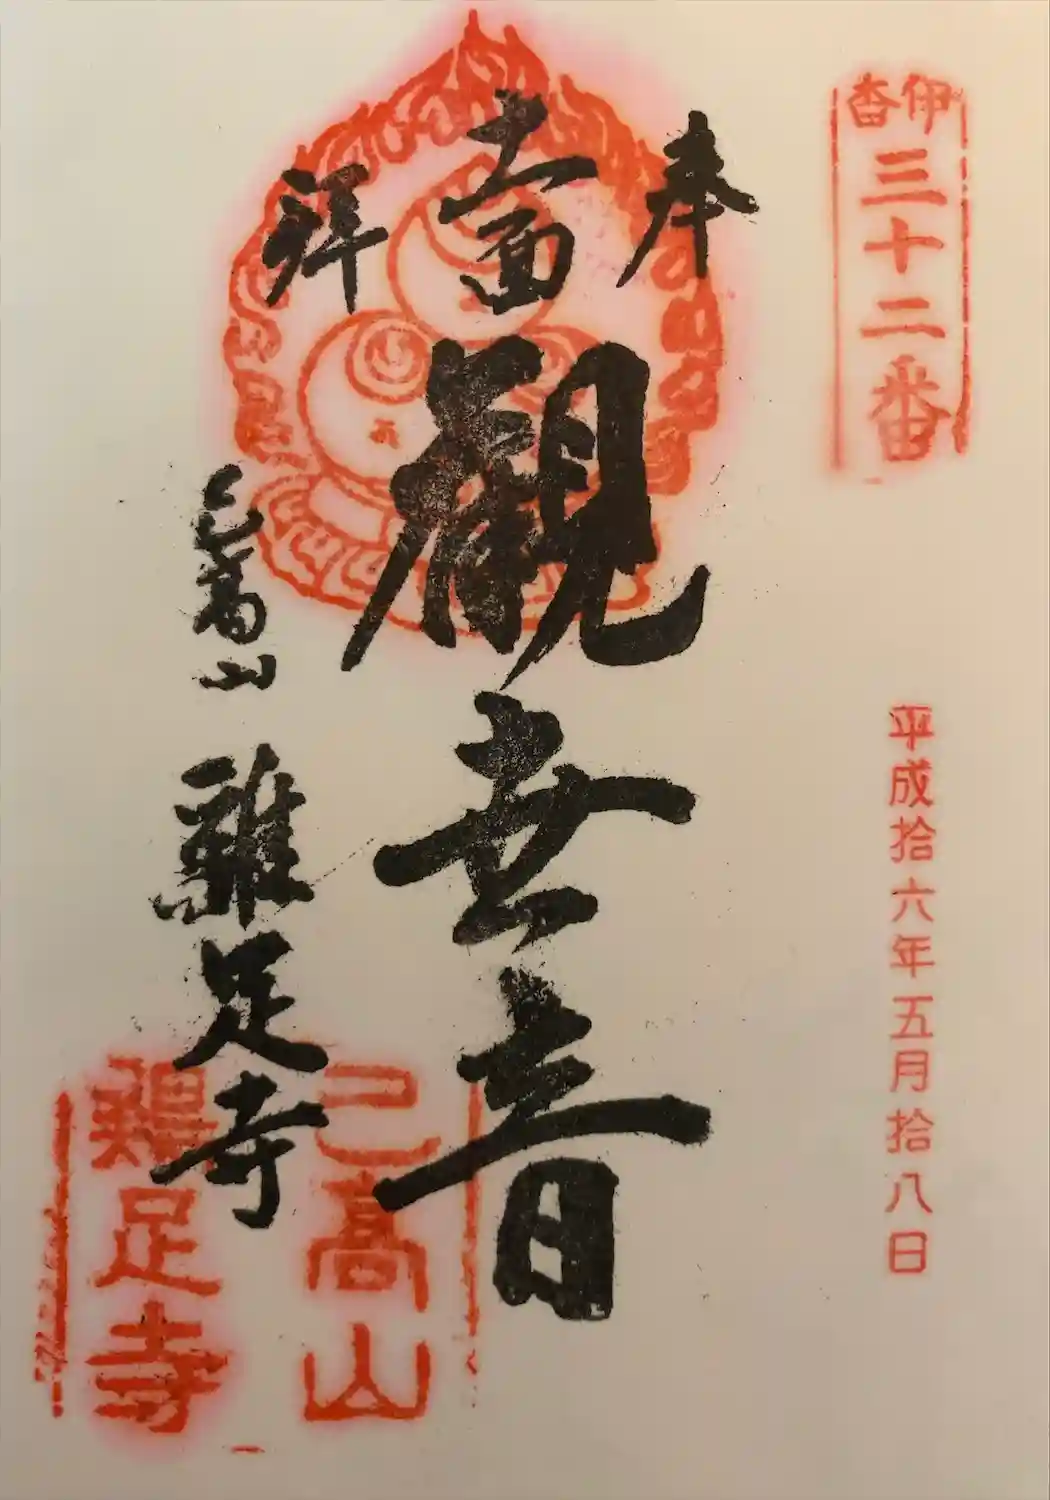 伊香
三十二番
平成拾六年五月拾八日
奉拝
十一面觀世音
己高山 雞足寺
己高山
鶏足寺